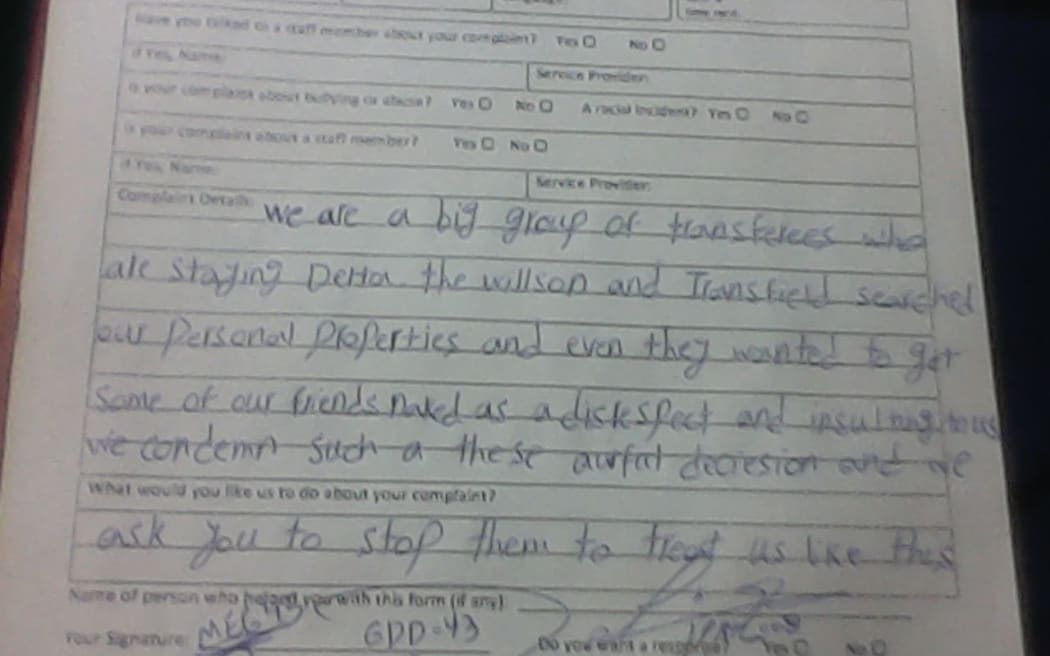 Have you talked to a staff member about your complaint? Yes No
If Yes, Name: Service Provider:
Is your complaint about bullying or abuse? Yes No A racial incident? Yes No
Is your complaint about a staff member? Yes No
If Yes, Name: Service Provider:
Complaint Details: we are a big group of transferees who
are staying Delta. the willson and Transfield searched
our Personal Properties and even they wanted to get
Some of our friends naked as a diskespect and insulting to us
we condemn such a these aurfal deciesion and we
What would you like us to do about your complaint?
ask you to stop them to treat us like this
Name of person who helped you with this form (if any)
Your Signature: GDD-43 Do you want a response? Yes No